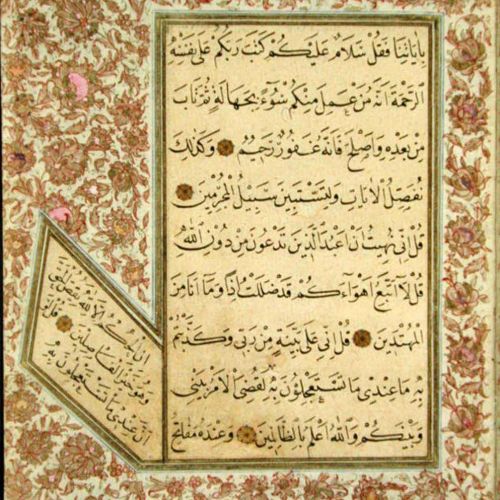 بِاٰيَاتِنَا فَقُلْ سَلَامٌ عَلَيْكُمْ كَتَبَ رَبُّكُمْ عَلٰى نَفْسِهِ
الرَّحْمَةَ اَنَّهُ مَنْ عَمِلَ مِنْكُمْ سُوٓءًا بِجَهَالَةٍ ثُمَّ تَابَ
مِنْ بَعْدِهِ وَاَصْلَحَ فَاَنَّهُ غَفُورٌ رَحِيمٌ وَكَذٰلِكَ
نُفَصِّلُ الْاٰيَاتِ وَلِتَسْتَبِينَ سَبِيلُ الْمُجْرِمِينَ
قُلْ اِنِّى نُهِيتُ اَنْ اَعْبُدَ الَّذِينَ تَدْعُونَ مِنْ دُونِ اللّٰهِ
قُلْ لَٓا اَتَّبِعُ اَهْوَٓاءَكُمْ قَدْ ضَلَلْتُ اِذًا وَمَٓا اَنَا مِنَ
الْمُهْتَدِينَ قُلْ اِنِّى عَلٰى بَيِّنَةٍ مِنْ رَبِّى وَكَذَّبْتُمْ
بِهِ مَا عِنْدِى مَا تَسْتَعْجِلُونَ بِهِ لَقُضِىَ الْاَمْرُ بَيْنِى
وَبَيْنَكُمْ وَاللّٰهُ اَعْلَمُ بِالظَّالِمِينَ وَعِنْدَهُ مَفَاتِحُ
اِنِ الْحُكْمُ اِلَّا لِلّٰهِ يَقُصُّ الْحَقَّ
وَهُوَ خَيْرُ الْفَاصِلِينَ قُلْ لَوْ
اَنَّ عِنْدِى مَا تَسْتَعْجِلُونَ بِهِ